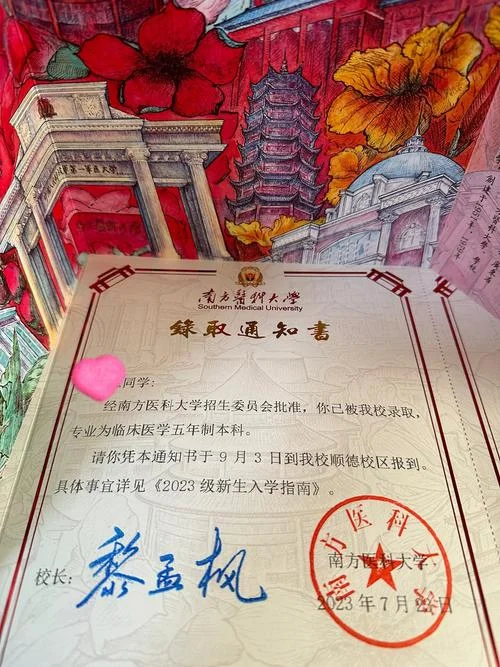 第一军医大学
南方醫科大學
Southern Medical University
錄取通知書
同学:
经南方医科大学招生委员会批准,你已被我校录取,
专业为临床医学五年制本科。
请你凭本通知书于 9 月 3 日到我校顺德校区报到。
具体事宜详见《2023 级新生入学指南》。
校长:
黎孟枫
南方医科大学
南方医科大学
2023 年 7 月 2 日